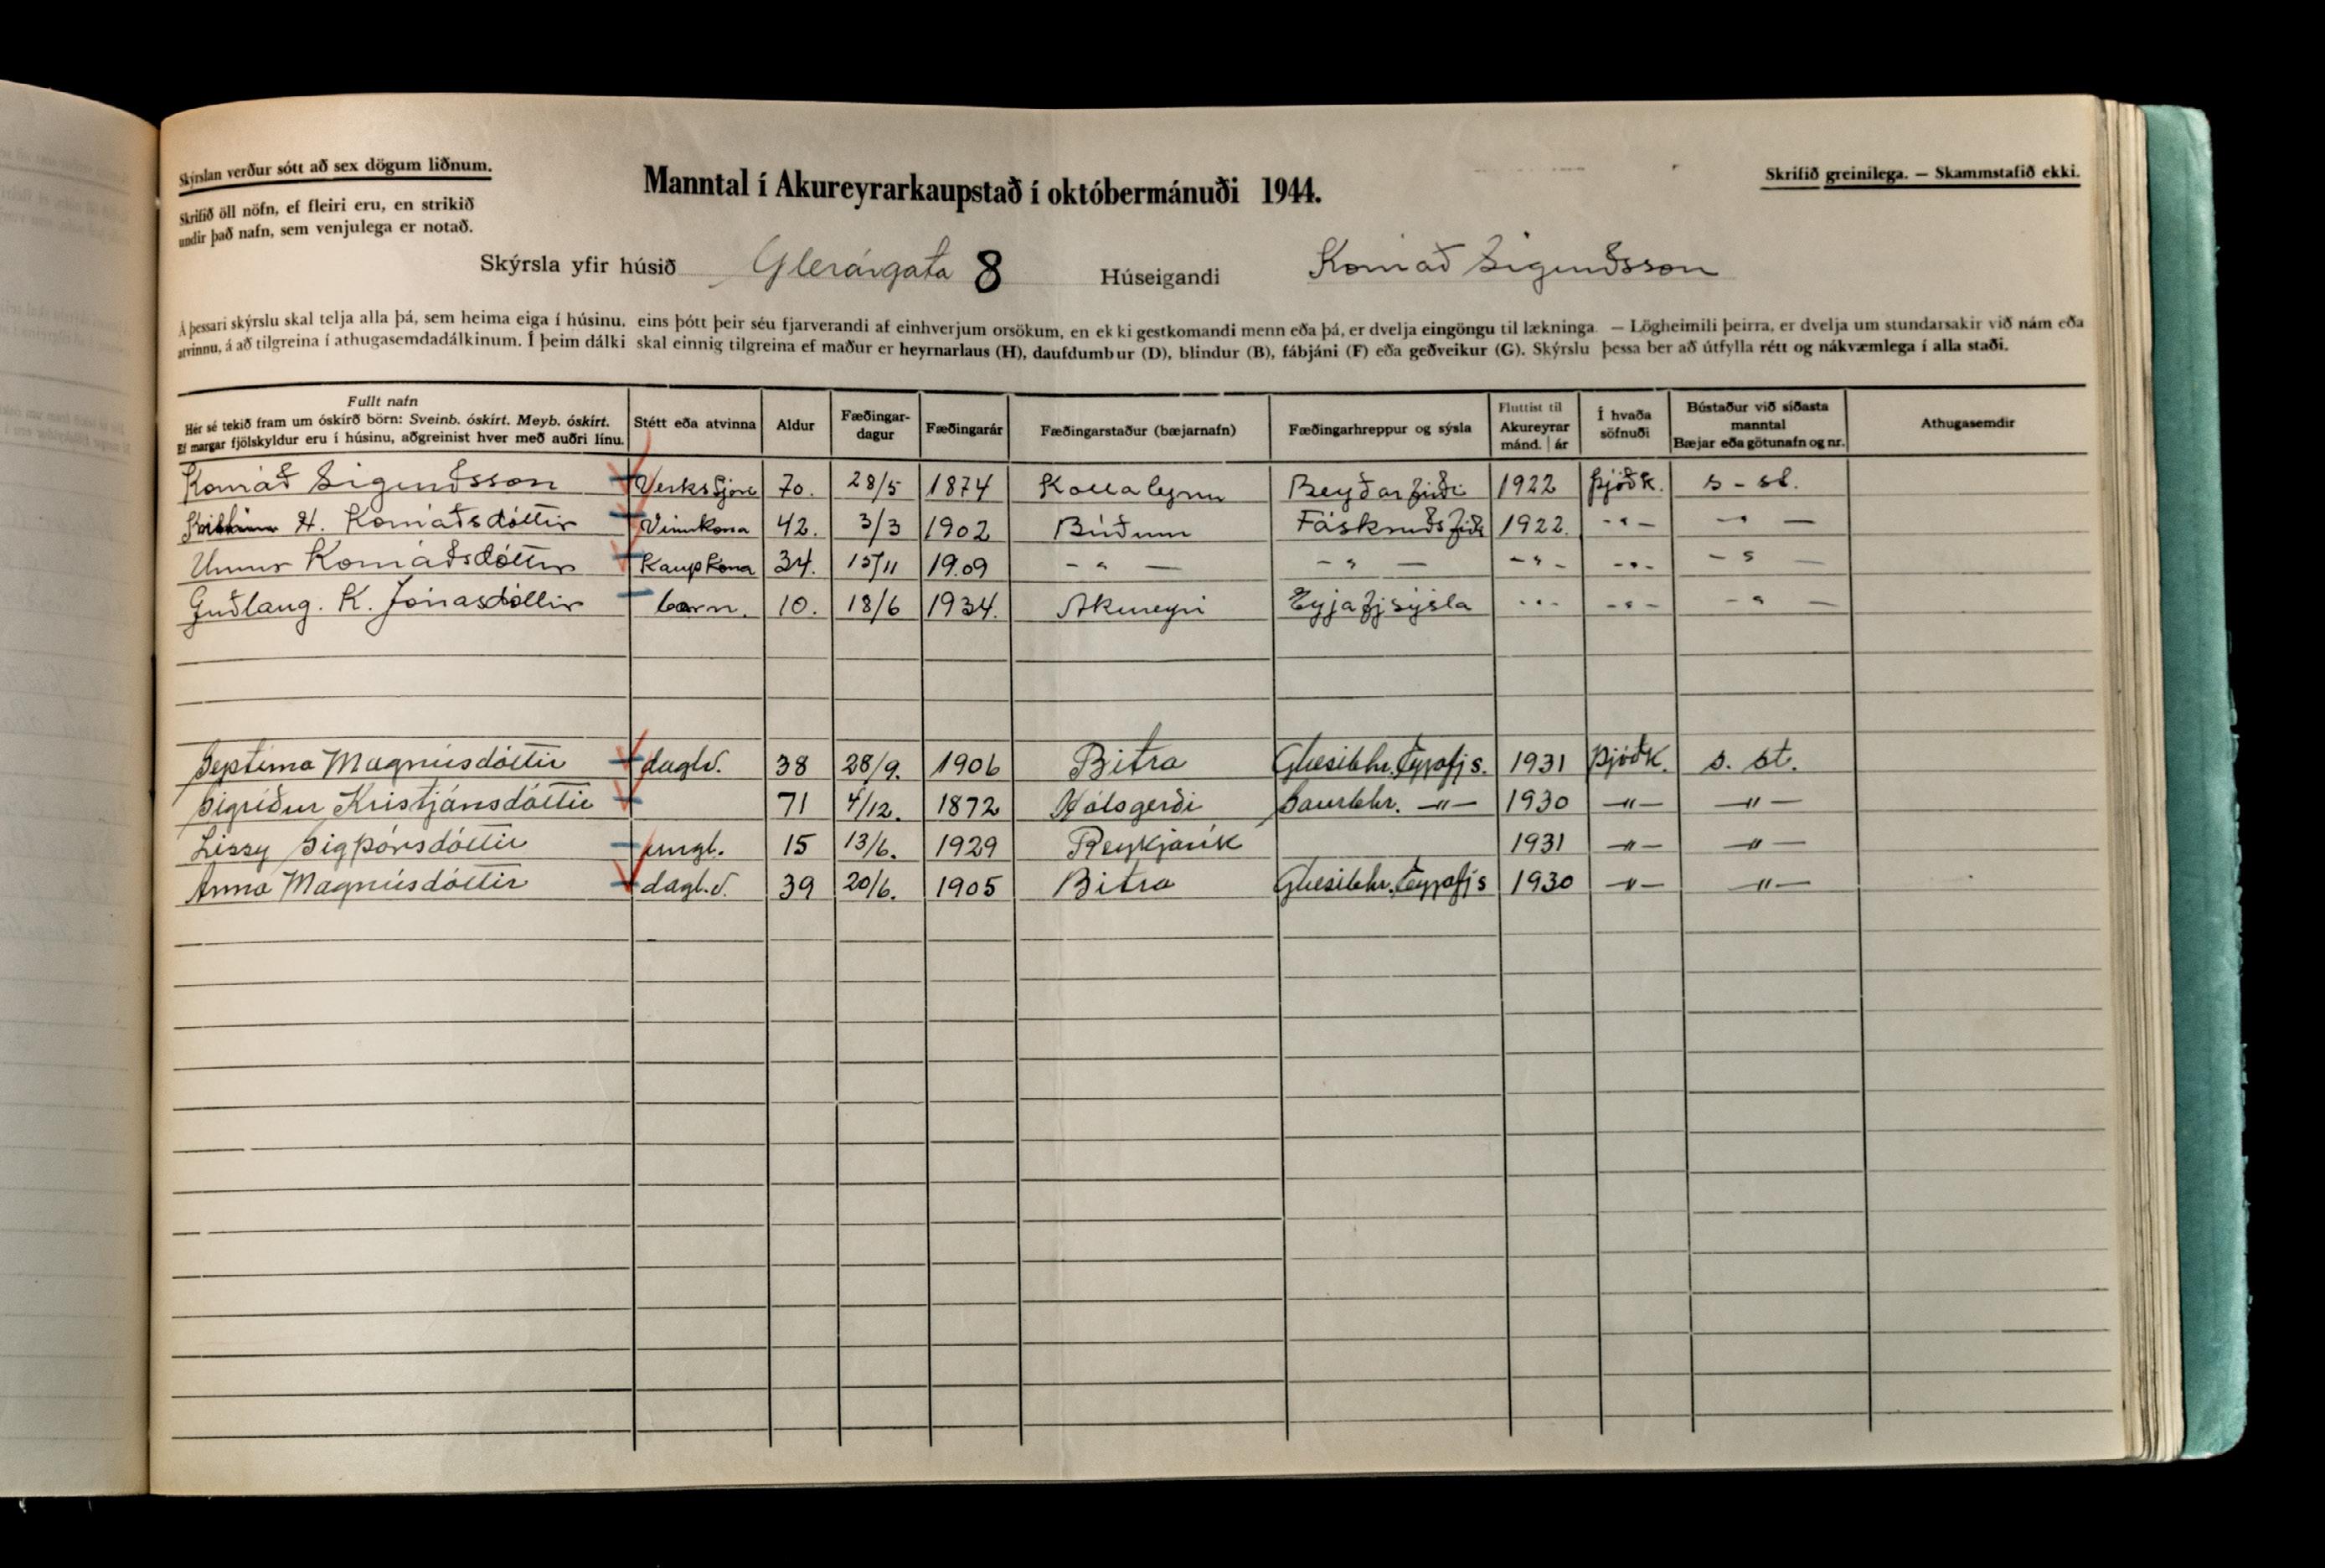 Skýrslan verður sótt að sex dögum liðnum.
Skrifið öll nöfn, ef fleiri eru, en strikið
undir það nafn, sem venjulega er notað.
Manntal í Akureyrarkaupstað í októbermánuði 1944.
Skrifið greinilega. — Skammstafið ekki.
Skýrsla yfir húsið Glerárgata 8 Húseigandi Konráð Sigurðsson
Á þessari skýrslu skal telja alla þá, sem heima eiga í húsinu, eins þótt þeir séu fjarverandi af einhverjum orsökum, en ekki gestkomandi menn eða þá, er dvelja eingöngu til lækninga. — Lögheimili þeirra, er dvelja um stundarsakir við nám eða
atvinnu, á að tilgreina í athugasemdadálkinum. Í þeim dálki skal einnig tilgreina ef maður er heyrnarlaus (H), daufdumbur (D), blindur (B), fábjáni (F) eða geðveikur (G). Skýrslu þessa ber að útfylla rétt og nákvæmlega í alla staði.
Fullt nafn
Hér sé tekið fram um óskírð börn: Sveinb. óskírt. Meyb. óskírt.
Ef margar fjölskyldur eru í húsinu, aðgreinist hver með auðri línu.
Stétt eða atvinna
Aldur
Fæðingar-
dagur
Fæðingarár
Fæðingarstaður (bæjarnafn)
Fæðingarhreppur og sýsla
Fluttist til
Akureyrar
mánd. | ár
Í hvaða
söfnuði
Bústaður við síðasta
manntal
Bæjar eða götunafn og nr.
Athugasemdir
Konráð Sigurðsson Verkstjóri 70. 28/5 1874 Kollaleyru Reyðarfirði 1922 Þjóðk. s - st.
H. Konráðsdóttir Vinnukona 42. 3/3 1902 Búðum Fáskrúðsfirði 1922. - " - - " -
Unnur Konráðsdóttir Kaupkona 34. 15/11 1909 - " - - " - - " - - " - - " -
Guðlaug. K. Jónasdóttir barn. 10. 18/6 1934. Akureyri Eyjafjsýsla - " - - " - - " -
Septíma Magnúsdóttir daglv. 38 28/9. 1906 Bitra Glæsibhr. Eyjafjs. 1931 Þjóðk. s. st.
Sigríður Kristjánsdóttir 71 4/12. 1872 Hólsgerði Saurbhr. — " — 1930 — " — — " —
Lissy Sigþórsdóttir ungl. 15 13/6. 1929 Reykjavík 1931 — " — — " —
Anna Magnúsdóttir dagl.v. 39 20/6. 1905 Bitra Glæsibhr. Eyjafjs 1930 — " — — " —